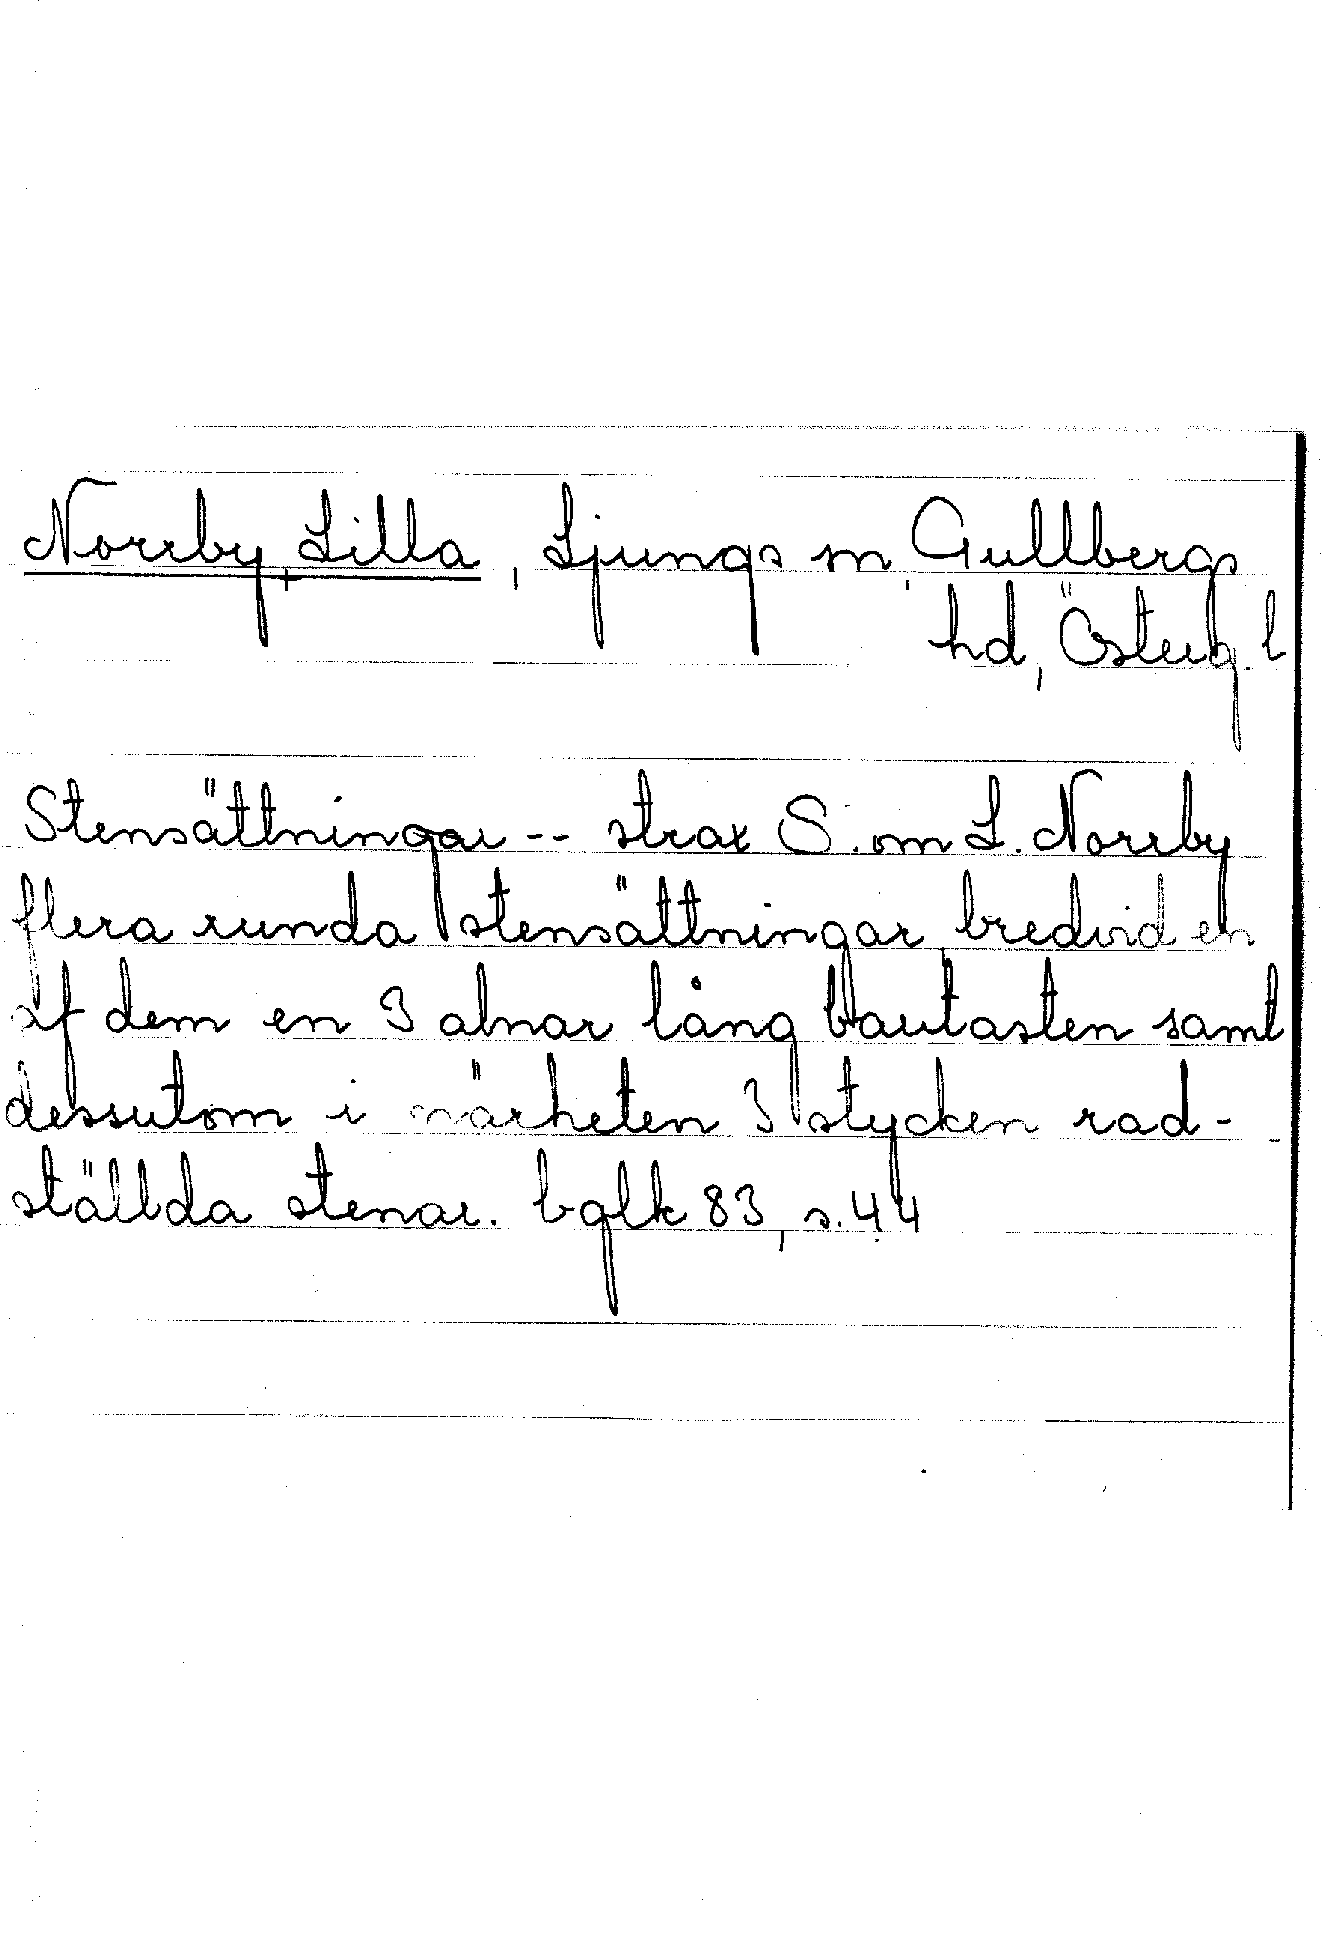 Norrby, Lilla, Ljungs sn, Gullbergs
hd, Österg. l
Stensättningar -- strax S. om L. Norrby
flera runda stensättningar, bredvid en
af dem en 3 alnar lång bautasten samt
dessutom i närheten 3 stycken rad-
ställda stenar. bglk 83, s. 44